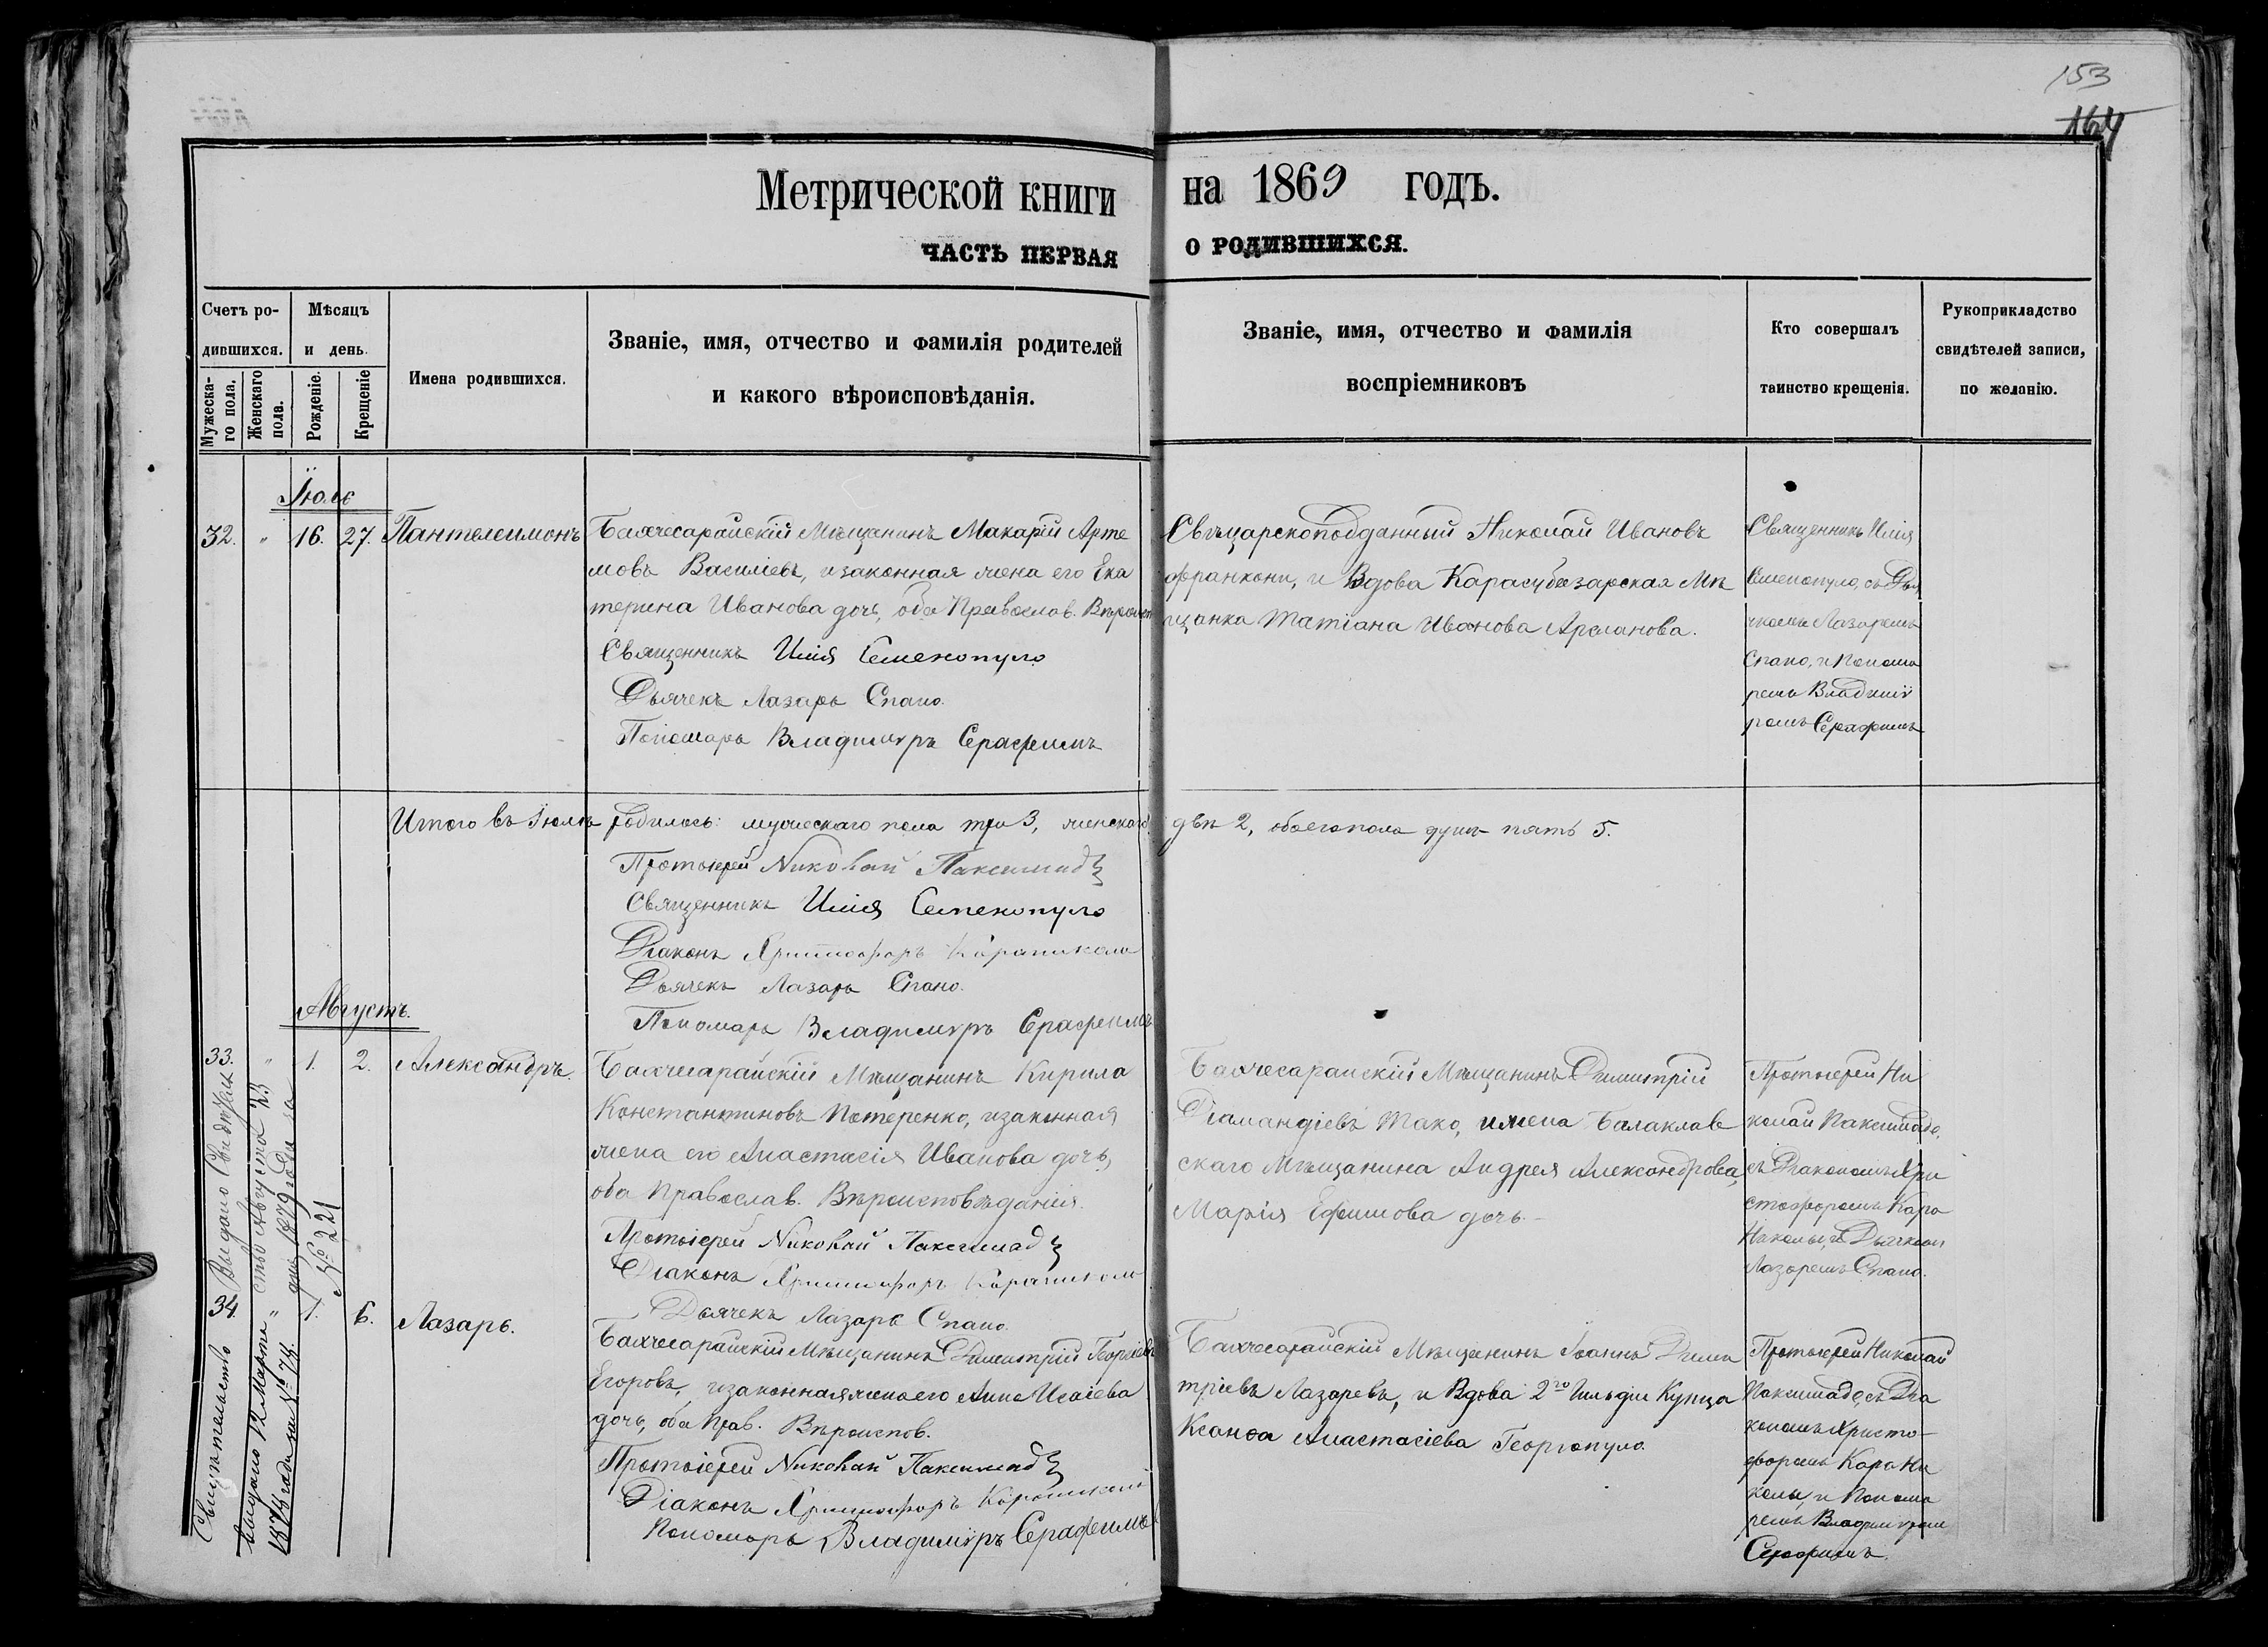 153
164
Метрической книги на 1869 годъ.
ЧАСТЬ ПЕРВАЯ О РОДИВШИХСЯ.
Счетъ ро-
дившихся.
Мѣсяцъ
и день.
Мужеска-
го пола.
Женскаго
пола.
Рожденіе.
Крещеніе
Имена родившихся.
Званіе, имя, отчество и фамилія родителей
и какого вѣроисповѣданія.
Званіе, имя, отчество и фамилія
воспріемниковъ
Кто совершалъ
таинство крещенія.
Рукоприкладство
свидѣтелей записи,
по желанію.
Іюль
32. " 16. 27. Пантелеимонъ
Бахчесарайскій Мѣщанинъ Макарій Арте
мовъ Василіевъ, и законная жена его Ека
терина Иванова дочь, оба Православ. Вѣроисп
Священникъ Илія Семенопуло
Дьячекъ Лазарь Спано.
Пономарь Владимиръ Серафимъ
Свѣцарскоподданный Николай Ивановъ
Франкони, и Вдова Карасубазарская Мѣ
щанка Татіана Иванова Арсланова.
Священникъ Илія
Семенопуло, съ Дья
чкомъ Лазаремъ
Спано, и Понома
ремъ Владимі
ромъ Серафимъ
Итого въ Іюлѣ родилось: мужескаго пола три 3, женскаго двѣ 2, обоего пола душъ пять 5.
Протоіерей Николай Паксимад
Священникъ Илія Семенопуло
Діаконъ Христофоръ Караникола
Дьячекъ Лазарь Спано.
Пономарь Владимиръ Серафимъ
Августъ.
33. " 1. 2. Александръ.
Бахчесарайскій Мѣщанинъ Кирила
Константиновъ Нетеренко, и законная
жена его Анастасія Иванова дочь,
оба Православ. Вѣроисповѣданія.
Протоіерей Николай Паксимад
Діаконъ Христофоръ Караникола
Дьячекъ Лазарь Спано.
Бахчесарайскій Мѣщанинъ Димитрій
Діамандіевъ Тако, и жена Балаклав
скаго Мѣщанина Андрея Александрова,
Марія Ефимова дочь.
Протоіерей Ни
колай Паксимадо,
съ Діакономъ Хри
стофоромъ Кара
Николы, и Дьячкомъ
Лазаремъ Спано.
Выдано Свидѣтель
ство Августа 23
дня 1879 года за
№ 221
34 " 1. 6. Лазарь.
Бахчесарайскій Мѣщанинъ Димитрій Георгіевъ
Егоровъ, и законная жена его Анна Исаіева
дочь, оба Прав. Вѣроиспов.
Протоіерей Николай Паксимад
Діаконъ Христофоръ Караникола
Пономарь Владимиръ Серафимъ
Бахчесарайскій Мѣщанинъ Іоаннъ Дими
тріевъ Лазаревъ, и Вдова 2го Гильдіи Купца
Ксанфа Анастасіева Георгопуло.
Протоіерей Николай
Паксимадо, съ Діа
кономъ Христо-
форомъ Кара Ни
колы, и Понома
ремъ Владимиромъ
Серафимъ.
Свидѣтельство
выдано 12 Марта
1874 года за № 74.